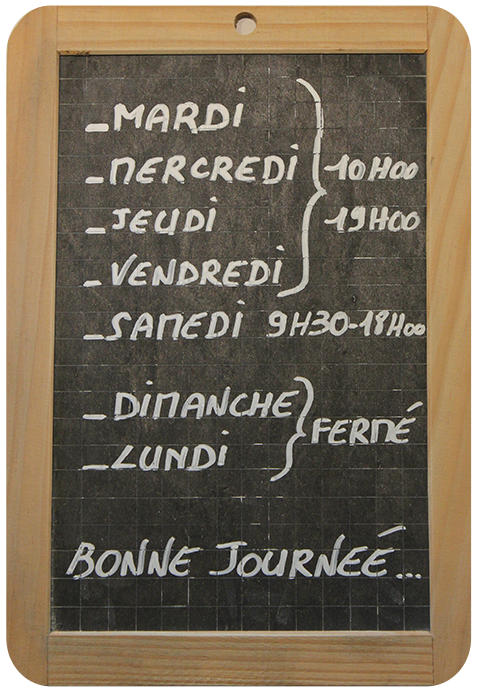 _MARDI
_MERCREDI 10H00
_JEUDI 19H00
_VENDREDI
_SAMEDI 9H30-18H00
_DIMANCHE
FERMÉ
_LUNDI
BONNE JOURNEÉ...